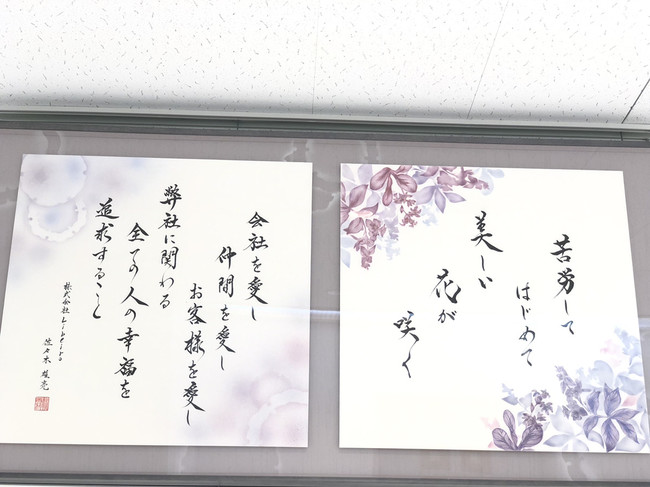 苦労して
はじめて
美しい
花が
咲く
会社を愛し
仲間を愛し
お客様を愛し
弊社に関わる
全ての人の幸福を
追求すること
株式会社Libeiro
佐々木 雄亮